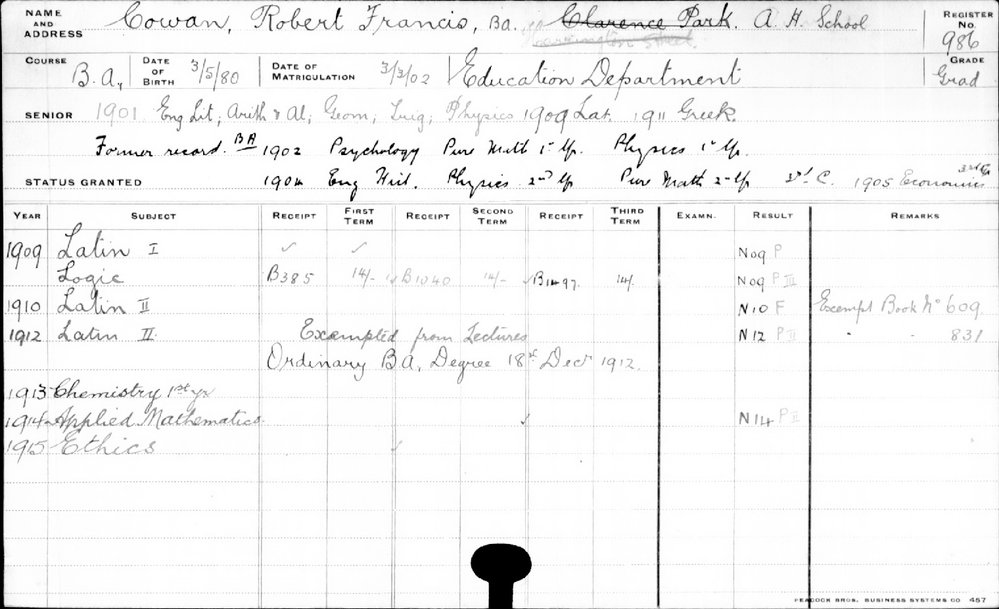 NAME AND ADDRESS Cowan, Robert Francis, Ba. Clarence Park. A. H. School REGISTER No. 986
COURSE B.A., DATE OF BIRTH 3/5/80 DATE OF MATRICULATION 3/3/02 Education Department GRADE Grad
SENIOR 1901 Eng Lit; Arith & Al; Geom; Trig; Physics 1909 Lat. 1911 Greek.
Former record. BA 1902 Psychology Pure Math 1st Yr. Physics 1st Yr.
STATUS GRANTED 1904 Eng Hist. Physics 2nd Yr Pure Math 2nd Yr 3rd C. 1905 Economics 3rd Cl
YEAR SUBJECT RECEIPT FIRST TERM RECEIPT SECOND TERM RECEIPT THIRD TERM EXAMN. RESULT REMARKS
1909 Latin I ✓ ✓ N09 P
Logic B385 14/- ✓ B1040 14/- ✓ B1497 14/. N09 P III
1910 Latin II N10 F Exempt Book No 609
1912 Latin II. Exempted from Lectures N12 P II " " 831
Ordinary B.A. Degree 18th Decr 1912.
1913 Chemistry 1st yr
1914 Applied Mathematics ✓ N14 P II
1915 Ethics ✓
PEACOCK BROS. BUSINESS SYSTEMS CO 457